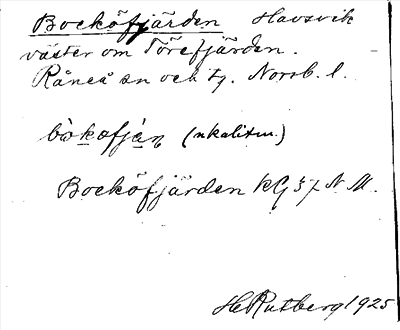 Bocköfjärden Havsvik
väster om Törefjärden.
Råneå sn och tg. Norrb. l.
bòkofjàṇ
Bocköfjärden
HcRutberg 1925